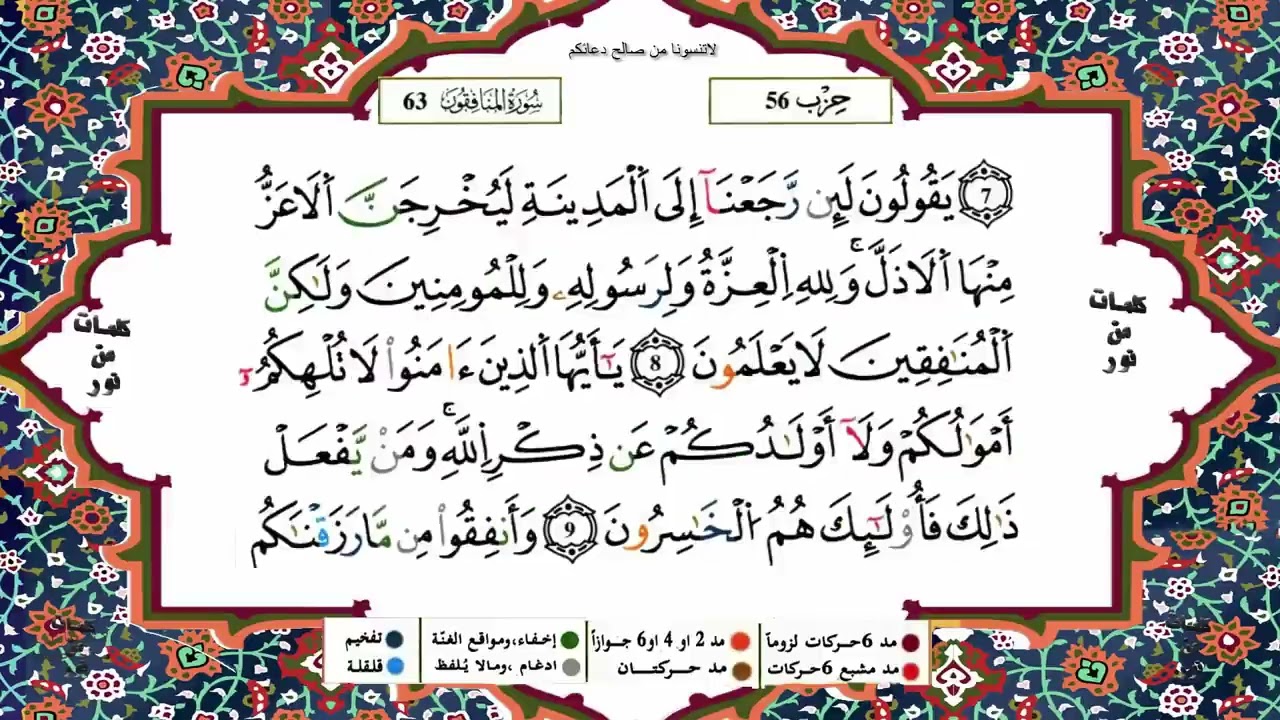 لاتنسونا من صالح دعائكم
حِزْب 56
سُورَةُ المُنَافِقُونَ 63
7 يَقُولُونَ لَئِن رَّجَعْنَآ إِلَى اَ۬لْمَدِينَةِ لَيُخْرِجَنَّ اَ۬لَاعَزُّ
مِنْهَا اَ۬لَاذَلَّۚ وَلِلهِ اِ۬لْعِزَّةُ وَلِرَسُولِهِۦ وَلِلْمُومِنِينَ وَلَٰكِنَّ
اَ۬لْمُنَٰفِقِينَ لَا يَعْلَمُونَ 8 يَٰٓأَيُّهَا اَ۬لذِينَ ءَامَنُواْ لَا تُلْهِكُمُۥٓ
أَمْوَٰلُكُمْ وَلَآ أَوْلَٰدُكُمْ عَن ذِكْرِ اِ۬للَّهِۚ وَمَنْ يَّفْعَلْ
ذَٰلِكَ فَأُوْلَٰٓئِكَ هُمُ اُ۬لْخَٰسِرُونَ 9 وَأَنفِقُواْ مِن مَّا رَزَقْنَٰكُم
كلمات
من
نور
كلمات
من
نور
مد 6 حركات لزوماً
مد 2 او 4 او 6 جوازاً
إخفاء، ومواقع الغنّة
تفخيم
مد مشبع 6 حركات
مد حركتان
ادغام، ومالا يُلفظ
قلقلة